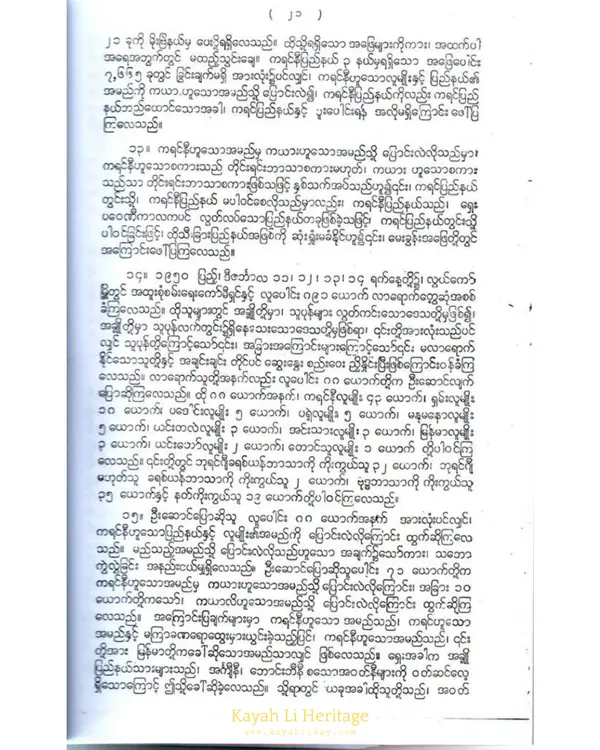 ( ၂၁ )
၂၁ ခုကို မိုးဗြဲနယ်မှ ပေးပို့ရရှိလေသည်။ ထိုသို့ရရှိသော အဖြေများကိုကား၊ အထက်ပါ
အရေအတွက်တွင် မထည့်သွင်းချေ။ ကရင်နီပြည်နယ် ၃ နယ်မှရရှိသော အဖြေပေါင်း
၇,၆၆၅ ခုတွင် ခြွင်းချက်မရှိ အားလုံး၌ပင်လျှင်၊ ကရင်နီဟူသောလူမျိုးနှင့် ပြည်နယ်၏
အမည်ကို ကယား.ဟူသောအမည်သို့ ပြောင်းလဲ၍၊ ကရင်နီပြည်နယ်ကိုလည်း ကရင်ပြည်
နယ်ဘည်ထောင်သောအခါ၊ ကရင်ပြည်နယ်နှင့် ပူးပေါင်းရန် အလိုမရှိကြောင်း ဖေါ်ပြ
ကြလေသည်။
၁၃။ ကရင်နီဟူသောအမည်မှ ကယားဟူသောအမည်သို့ ပြောင်းလဲလိုသည်မှာ၊
ကရင်နီဟူသောစကားသည် တိုင်းရင်းဘာသာစကားမဟုတ်၊ ကယား ဟူသောစကား
သည်သာ တိုင်းရင်းဘာသာစကားဖြစ်သဖြင့် နှစ်သက်အပ်သည်ဟူ၍၎င်း၊ ကရင်ပြည်နယ်
တွင်းသို့၊ ကရင်နီပြည်နယ် မပါဝင်စေလိုသည်မှာလည်း၊ ကရင်နီပြည်နယ်သည်၊ ရှေး
ပဝေဏီကာလကပင် လွတ်လပ်သောပြည်နယ်တခုဖြစ်ခဲ့သဖြင့်၊ ကရင်ပြည်နယ်တွင်းသို့
ပါဝင်ခြင်းဖြင့်၊ ထိုသီးခြားပြည်နယ်အဖြစ်ကို ဆုံးရှုံးမခံနိုင်ဟူ၍၎င်း၊ မေးခွန်းအဖြေတို့တွင်
အကြောင်းဖေါ်ပြကြလေသည်။
၁၄။ ၁၉၅၀ ပြည့်၊ ဒီဇင်ဘာလ ၁၁၊ ၁၂၊ ၁၃၊ ၁၄ ရက်နေ့တို့၌၊ လွယ်ကော်
မြို့တွင် အထူးစုံစမ်းရေးကော်မီရှင်နှင့် လူပေါင်း ၈၉၁ ယောက် လာရောက်တွေ့ဆုံအစစ်
ခံကြလေသည်။ ထိုသူများတွင် အချို့တို့မှာ၊ သူပုန်များ လွတ်ကင်းသောဒေသတို့မှဖြစ်၍၊
အချို့တို့မှာ သူပုန်လက်တွင်း၌ရှိနေသေးသောဒေသတို့မှဖြစ်ရာ၊ ၎င်းတို့အားလုံးသည်ပင်
လျှင် သူပုန်တို့ကြောင့်သော်၎င်း၊ အခြားအကြောင်းများကြောင့်သော်၎င်း မလာရောက်
နိုင်သောသူတို့နှင့် အချင်းချင်း တိုင်ပင် ဆွေးနွေး စည်းဝေး ညှိနှိုင်းပြီးဖြစ်ကြောင်းဝန်ခံကြ
လေသည်။ လာရောက်သူတို့အနက်လည်း လူပေါင်း ၈၈ ယောက်တို့က ဦးဆောင်လျက်
ပြောဆိုကြလေသည်။ ထို ၈၈ ယောက်အနက်၊ ကရင်နီလူမျိုး ၄၄ ယောက်၊ ရှမ်းလူမျိုး
၁၈ ယောက်၊ ပဒေါင်းလူမျိုး ၅ ယောက်၊ ပရဲ့လူမျိုး ၅ ယောက်၊ မနုမနောလူမျိုး
၅ ယောက်၊ ယင်းတလဲလူမျိုး ၃ ယောက်၊ အင်းသားလူမျိုး ၃ ယောက်၊ မြန်မာလူမျိုး
၃ ယောက်၊ ယင်းဘော်လူမျိုး ၂ ယောက်၊ တောင်သူလူမျိုး ၁ ယောက် တို့ပါဝင်ကြ
လေသည်။ ၎င်းတို့တွင် ဘုရင်ဂျီခရစ်ယန်ဘာသာကို ကိုးကွယ်သူ ၃၂ ယောက်၊ ဘုရင်ဂျီ
မဟုတ်သူ ခရစ်ယန်ဘာသာကို ကိုးကွယ်သူ ၂ ယောက်၊ ဗုဒ္ဓဘာသာကို ကိုးကွယ်သူ
၃၅ ယောက်နှင့် နတ်ကိုးကွယ်သူ ၁၉ ယောက်တို့ပါဝင်ကြလေသည်။
၁၅။ ဦးဆောင်ပြောဆိုသူ လူပေါင်း ၈၈ ယောက်အနက် အားလုံးပင်လျှင်၊
ကရင်နီဟူသောပြည်နယ်နှင့် လူမျိုး၏အမည်ကို ပြောင်းလဲလိုကြောင်း ထွက်ဆိုကြလေ
သည်။ မည်သည့်အမည်သို့ ပြောင်းလဲလိုသည်ဟူသော အချက်၌သော်ကား၊ သဘော
ကွဲလွဲခြင်း အနည်းငယ်မျှရှိလေသည်။ ဦးဆောင်ပြောဆိုသူပေါင်း ၇၁ ယောက်တို့က
ကရင်နီဟူသောအမည်မှ ကယားဟူသောအမည်သို့ ပြောင်းလဲလိုကြောင်း၊ အခြား ၁၀
ယောက်တို့ကသော်၊ ကယာလီဟူသောအမည်သို့ ပြောင်းလဲလိုကြောင်း ထွက်ဆိုကြ
လေသည်။ အကြောင်းပြချက်များမှာ၊ ကရင်နီဟူသော အမည်သည်၊ ကရင်ဟူသော
အမည်နှင့် မကြာခဏရောထွေးမှားယွင်းခဲ့သည့်ပြင်၊ ကရင်နီဟူသောအမည်သည်၊ ၎င်း
တို့အား မြန်မာတို့ကခေါ်ဆိုသောအမည်သာလျှင် ဖြစ်လေသည်။ ရှေးအခါက အချို့
ပြည်နယ်သားများသည်၊ အင်္ကျီနီ၊ ဘောင်းဘီနီ စသောအဝတ်နီများကို ဝတ်ဆင်လေ့
ရှိသောကြောင့် ဤသို့ခေါ်ဆိုခဲ့လေသည်။ သို့ရာတွင် ယခုအခါထိုသူတို့သည်၊ အဝတ်
Kayah Li Heritage
www.kayahlikay.com